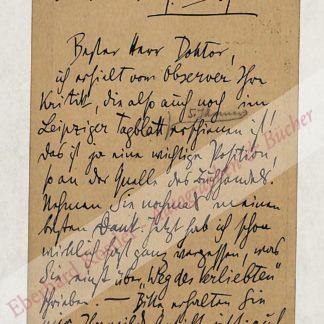 Bester Herr Doktor,
ich erhielt vom Observer Ihre
Kritik, die also auch noch im
Leipziger Tagblatt erschienen ist!
Das ist ja eine wichtige Position,
so an der Quelle des Buchhandels.
Nehmen Sie nochmal meinen
besten Dank. Jetzt hab ich schon
wirklich fast ganz vergessen, was
Sie einst vom „Weg des Verliebten"
schrieben. — Bitte erhalten Sie
mir
Eberhard Köstler Autographen & Bücher